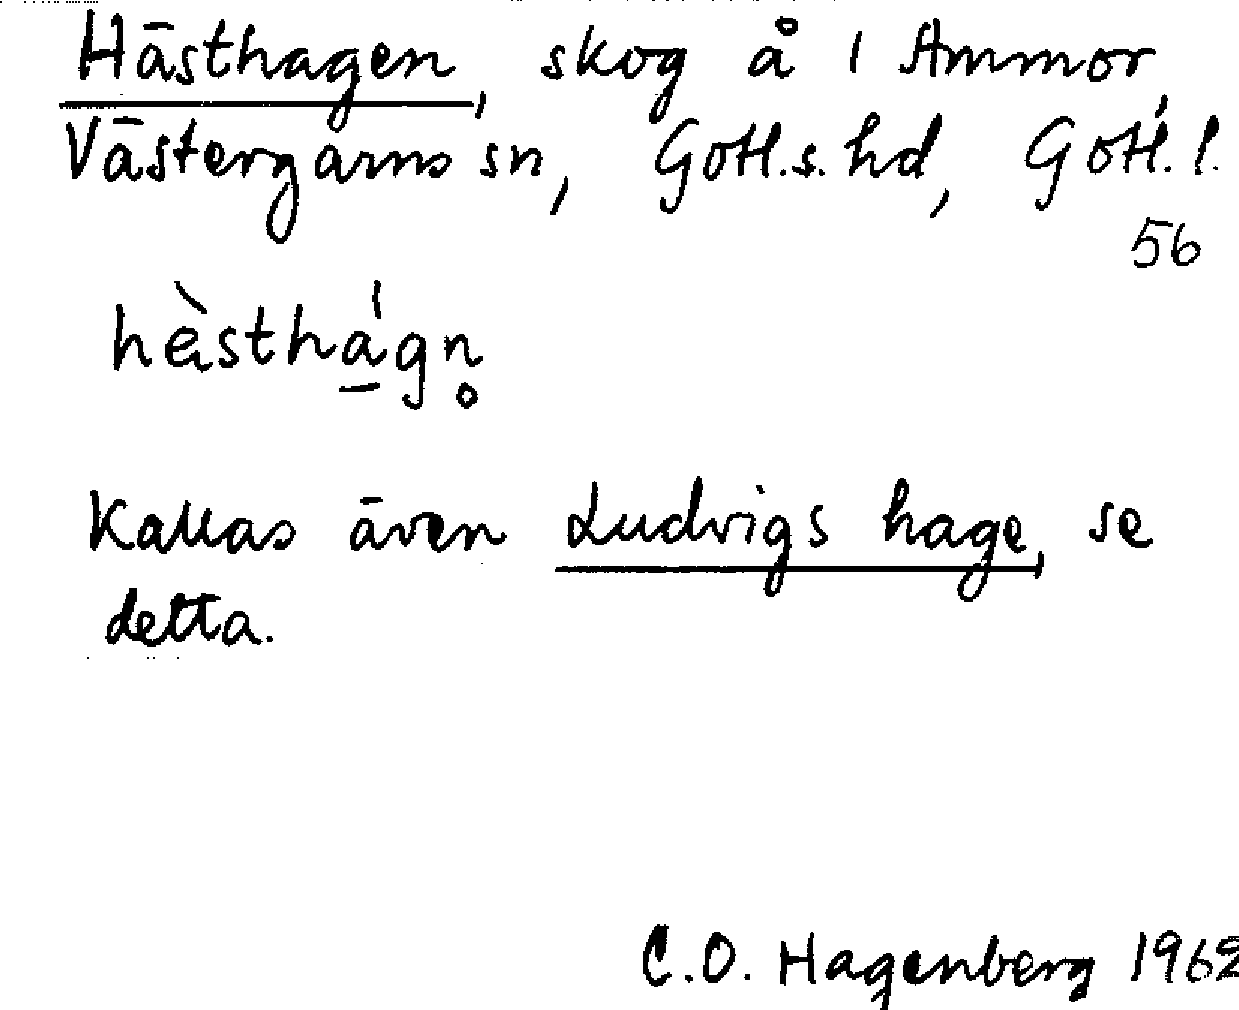 Hästhagen, skog å 1 Ammor,
Västergarns sn, Gotl.s. hd, Gotl. l.
56
hèsthá̲gn̥
Kallas även Ludvigs hage, se
detta.
C.O. Hagenberg 1962